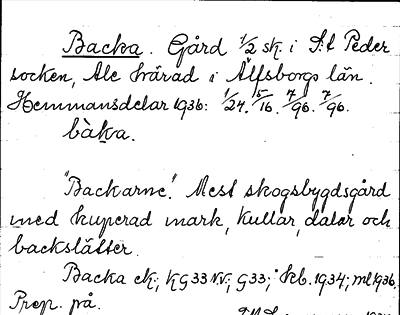 Backa. Gård 1/2 sk. i S:t Peder
socken, Ale härad i Älfsborgs län.
Hemmansdelar 1936: 1/24. 5/16. 7/96. 7/96.
bàka.
"Backarne". Mest skogsbygdsgård
med kuperad mark, kullar, dalar och
backslätter.
Backa ek; KG33 N.V.; G33; kb. 1934; ml 1936.
Prep. på.